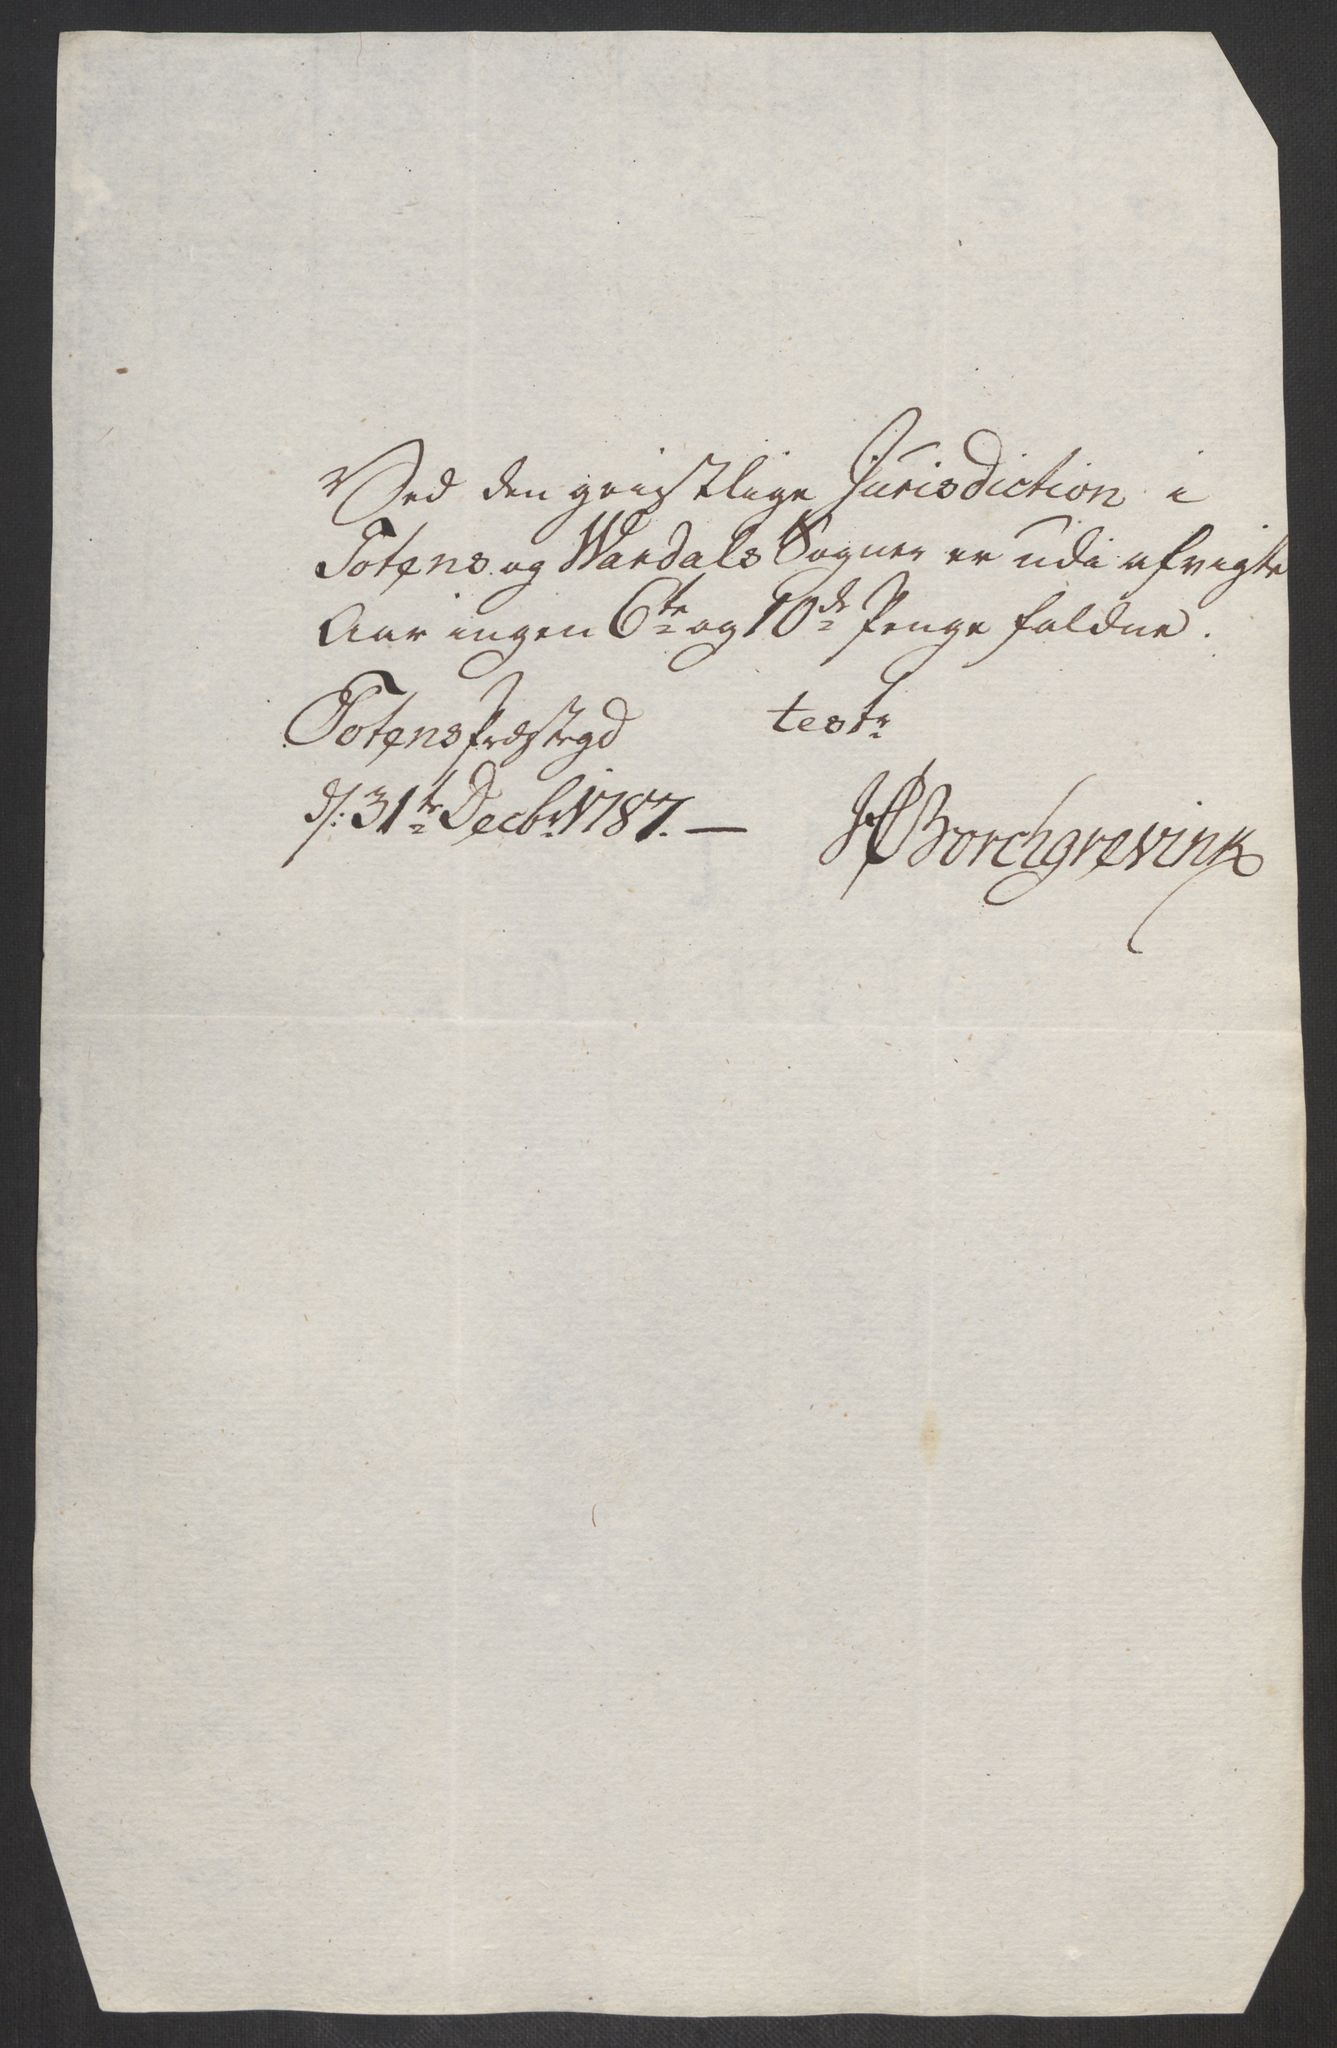 Ved den geistlige Jurisdiction i
Totens og Wardals Sogner er udi afvigte
Aar ingen 6te og 10de Penge faldne.
Totens Præstegd testr
d: 31te Decbr 1787. —
Borchgrevink